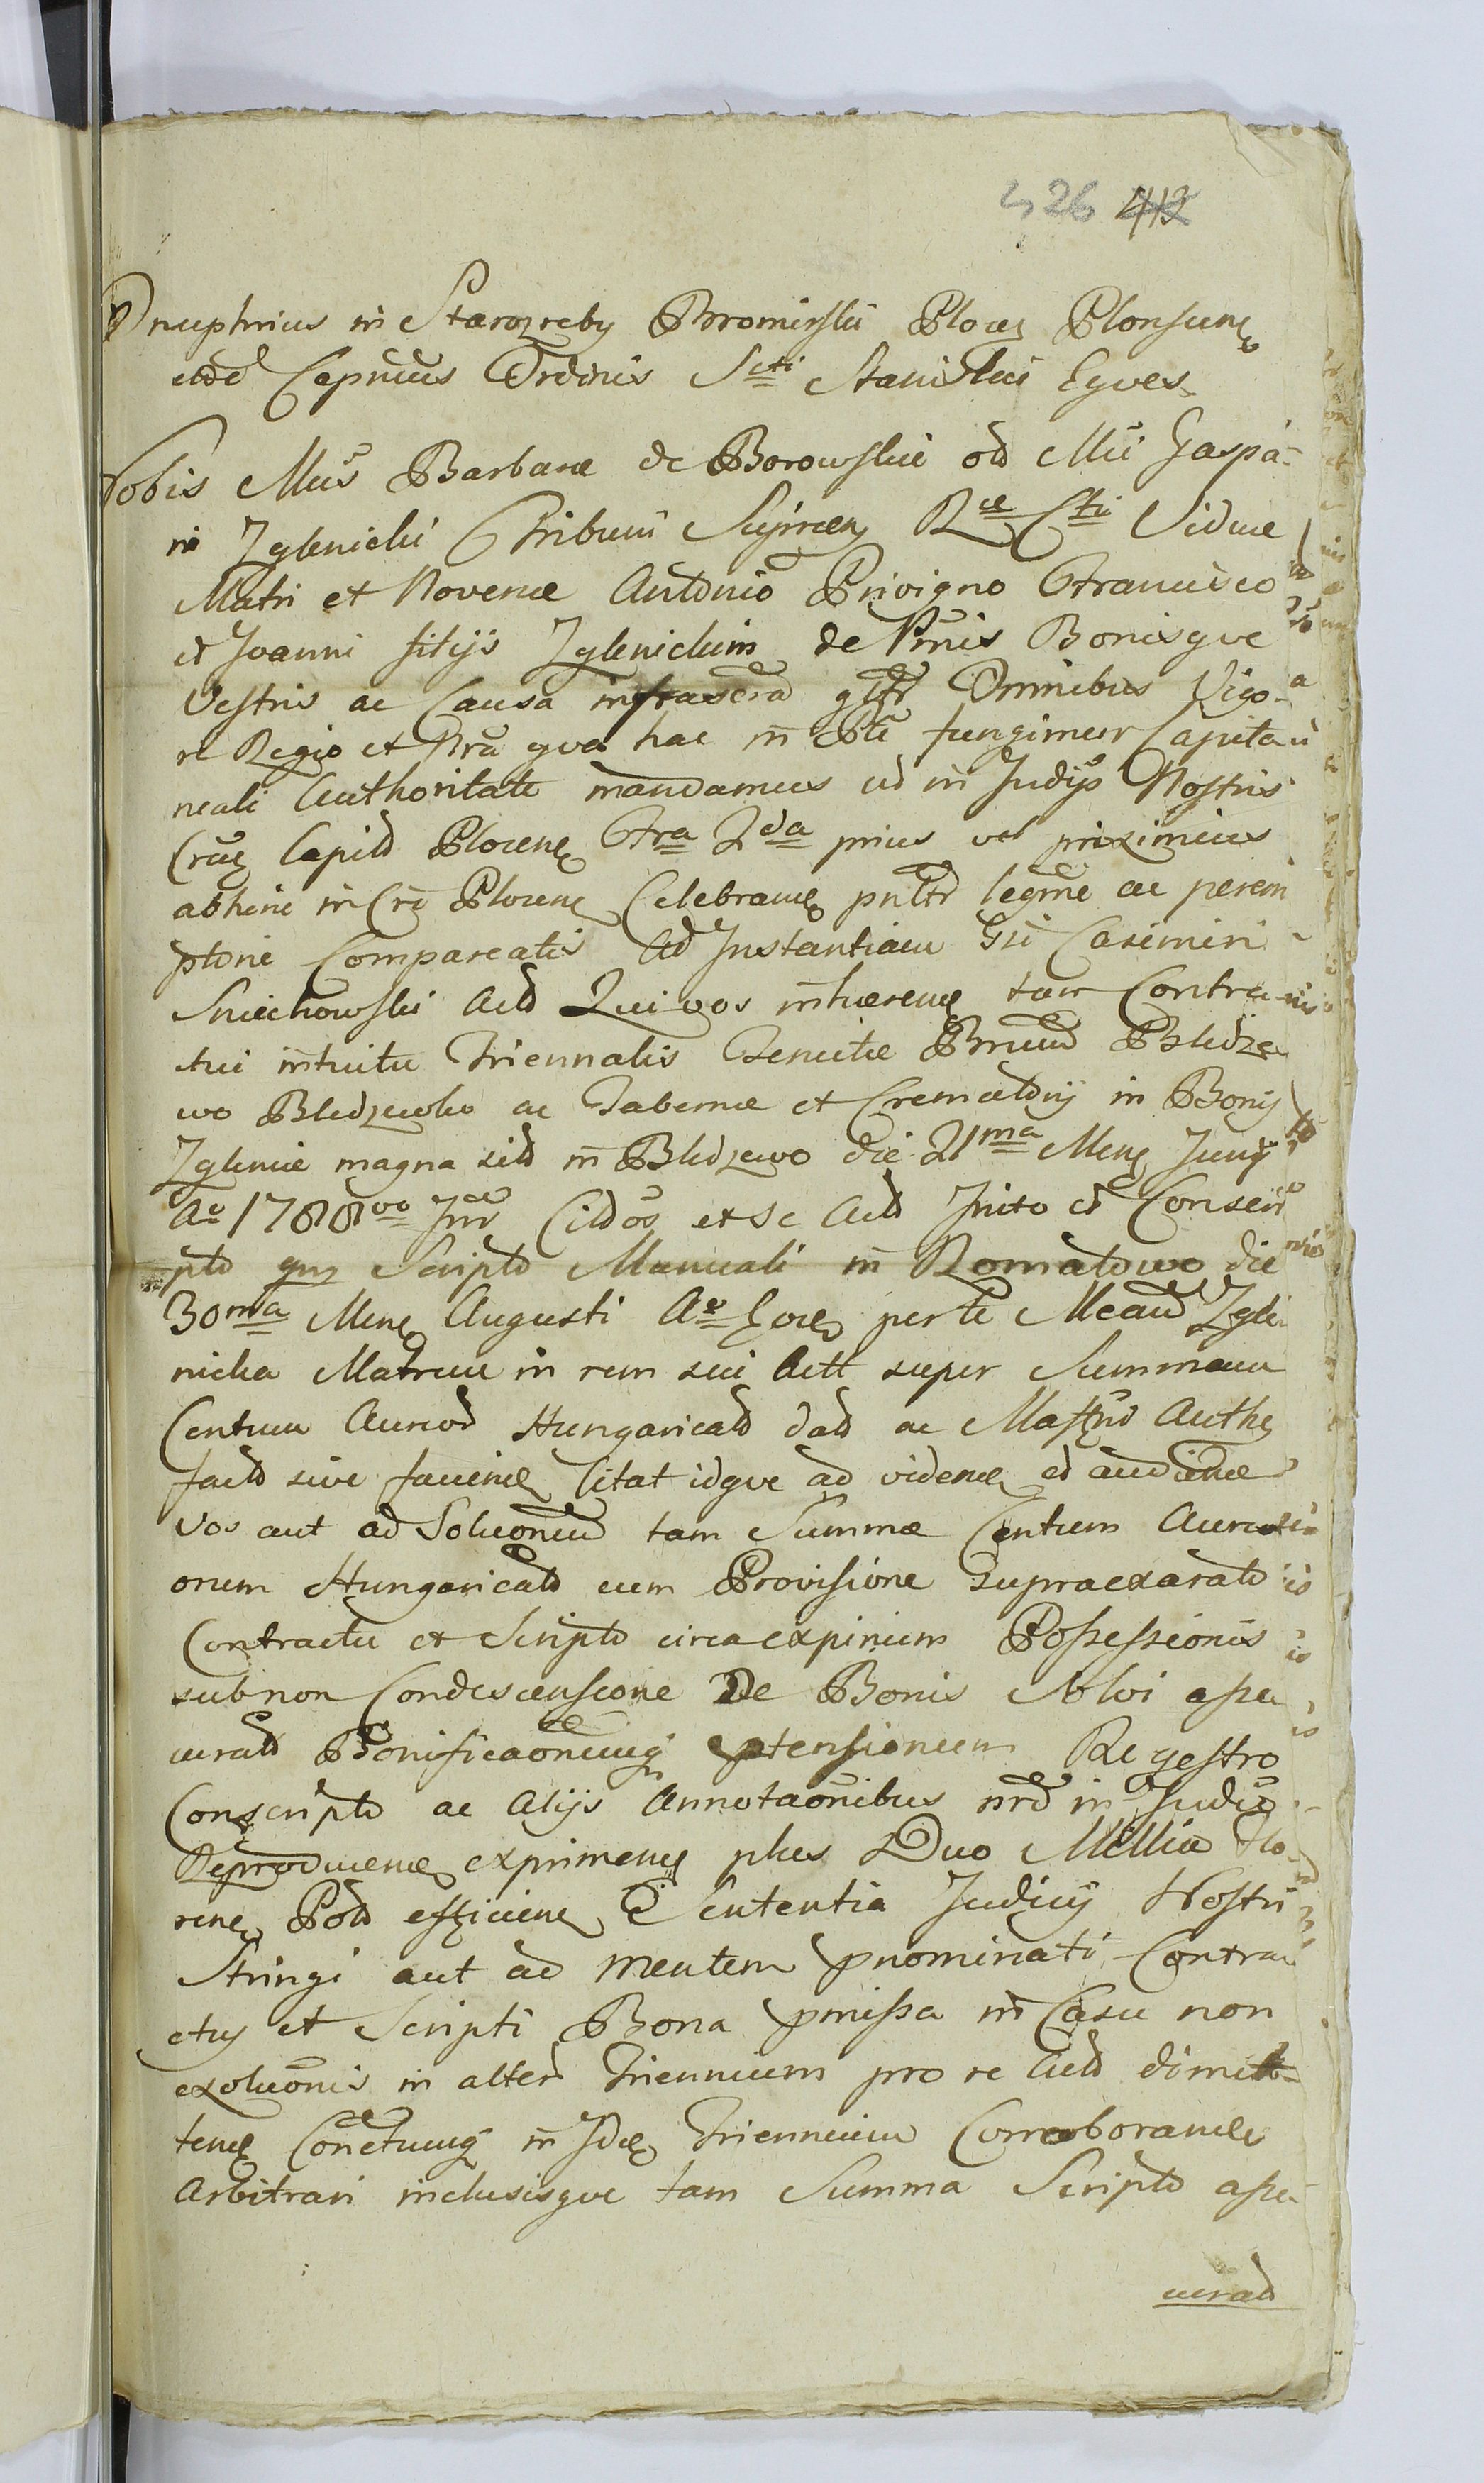 426 413
Onuphrius in Starozreby Bromirski Plocę Plonsceñ
etc Capneus Ordinis Scti Stanislai Eqves
Vobis Mcis Barbarae de Borowskie od Mci Gaspa-
ri Zglenicki Tribuni Sierpceñ Rae Cti Viduae
Matri et Novercae Antonio Privigno Francisco
et Joanni filijs Zglenickim de Prnis Bonisqve
Vestris ac Causa infrascra gltr Omnibus Vigo-
re Regio et Nra qva hac in Pte fungimur Capita
neali Authoritate mandamus ut in Judys Nostris
Crae Capitd Plocens Fra 2da prius vel proximius
abhinc in Crõ Plocens Celebrans pnltr legme ac perem
ptorie Compareatis Ad Instantiam Gsi Casimiri
Sniechowski Actd Qui vos inhaerens tam Contra
ctui intuitu Triennalis Tenutae Bnrum Bledze
wo Bledzewko ac Tabernae et Cremators in Bonis
Zglenie magna sitd in Bledzewo die 21ma Mens Juny
Ao 1788vo Inr Citdos et se Actd Inito et Conscri
pto qm Scripto Manuali in Romatowo die
30ma Mens Augusti Ao eod per te Mcam Zgle
nicka Matrem in rem sui Actt super Summam
Centum Aureod Hungaricald datd ac Mastro Authe
factd sive faciens Citat idqve ad videns et audiens
vos aut ad Soluonem tam Summae Centum Aure
orum Hungaricald cum Provisione supraexarato
Contractu et Scripto circa expirium Possessionis
sub non Condescensione De Bonis Nloi asse
curatd Bonificaonemqe ptensionum Regestro
Conscripto ac Alijs Annotaonibus nrd in Judio
Reproducens exprimens plus Duo Millia Flo-
rens Pold efficiens E Sententia Judicij Nostri
Stringi aut ad mentem pnominati Contra
ctus et Scripti Bona pmissa in Casu non
exoluonis in alterd Triennium pro re Actd dimit-
tens Conctumq in Ides Triennium Corroborandi
Arbitrari inclusisqve tam Summa Scripto asse-
curatd